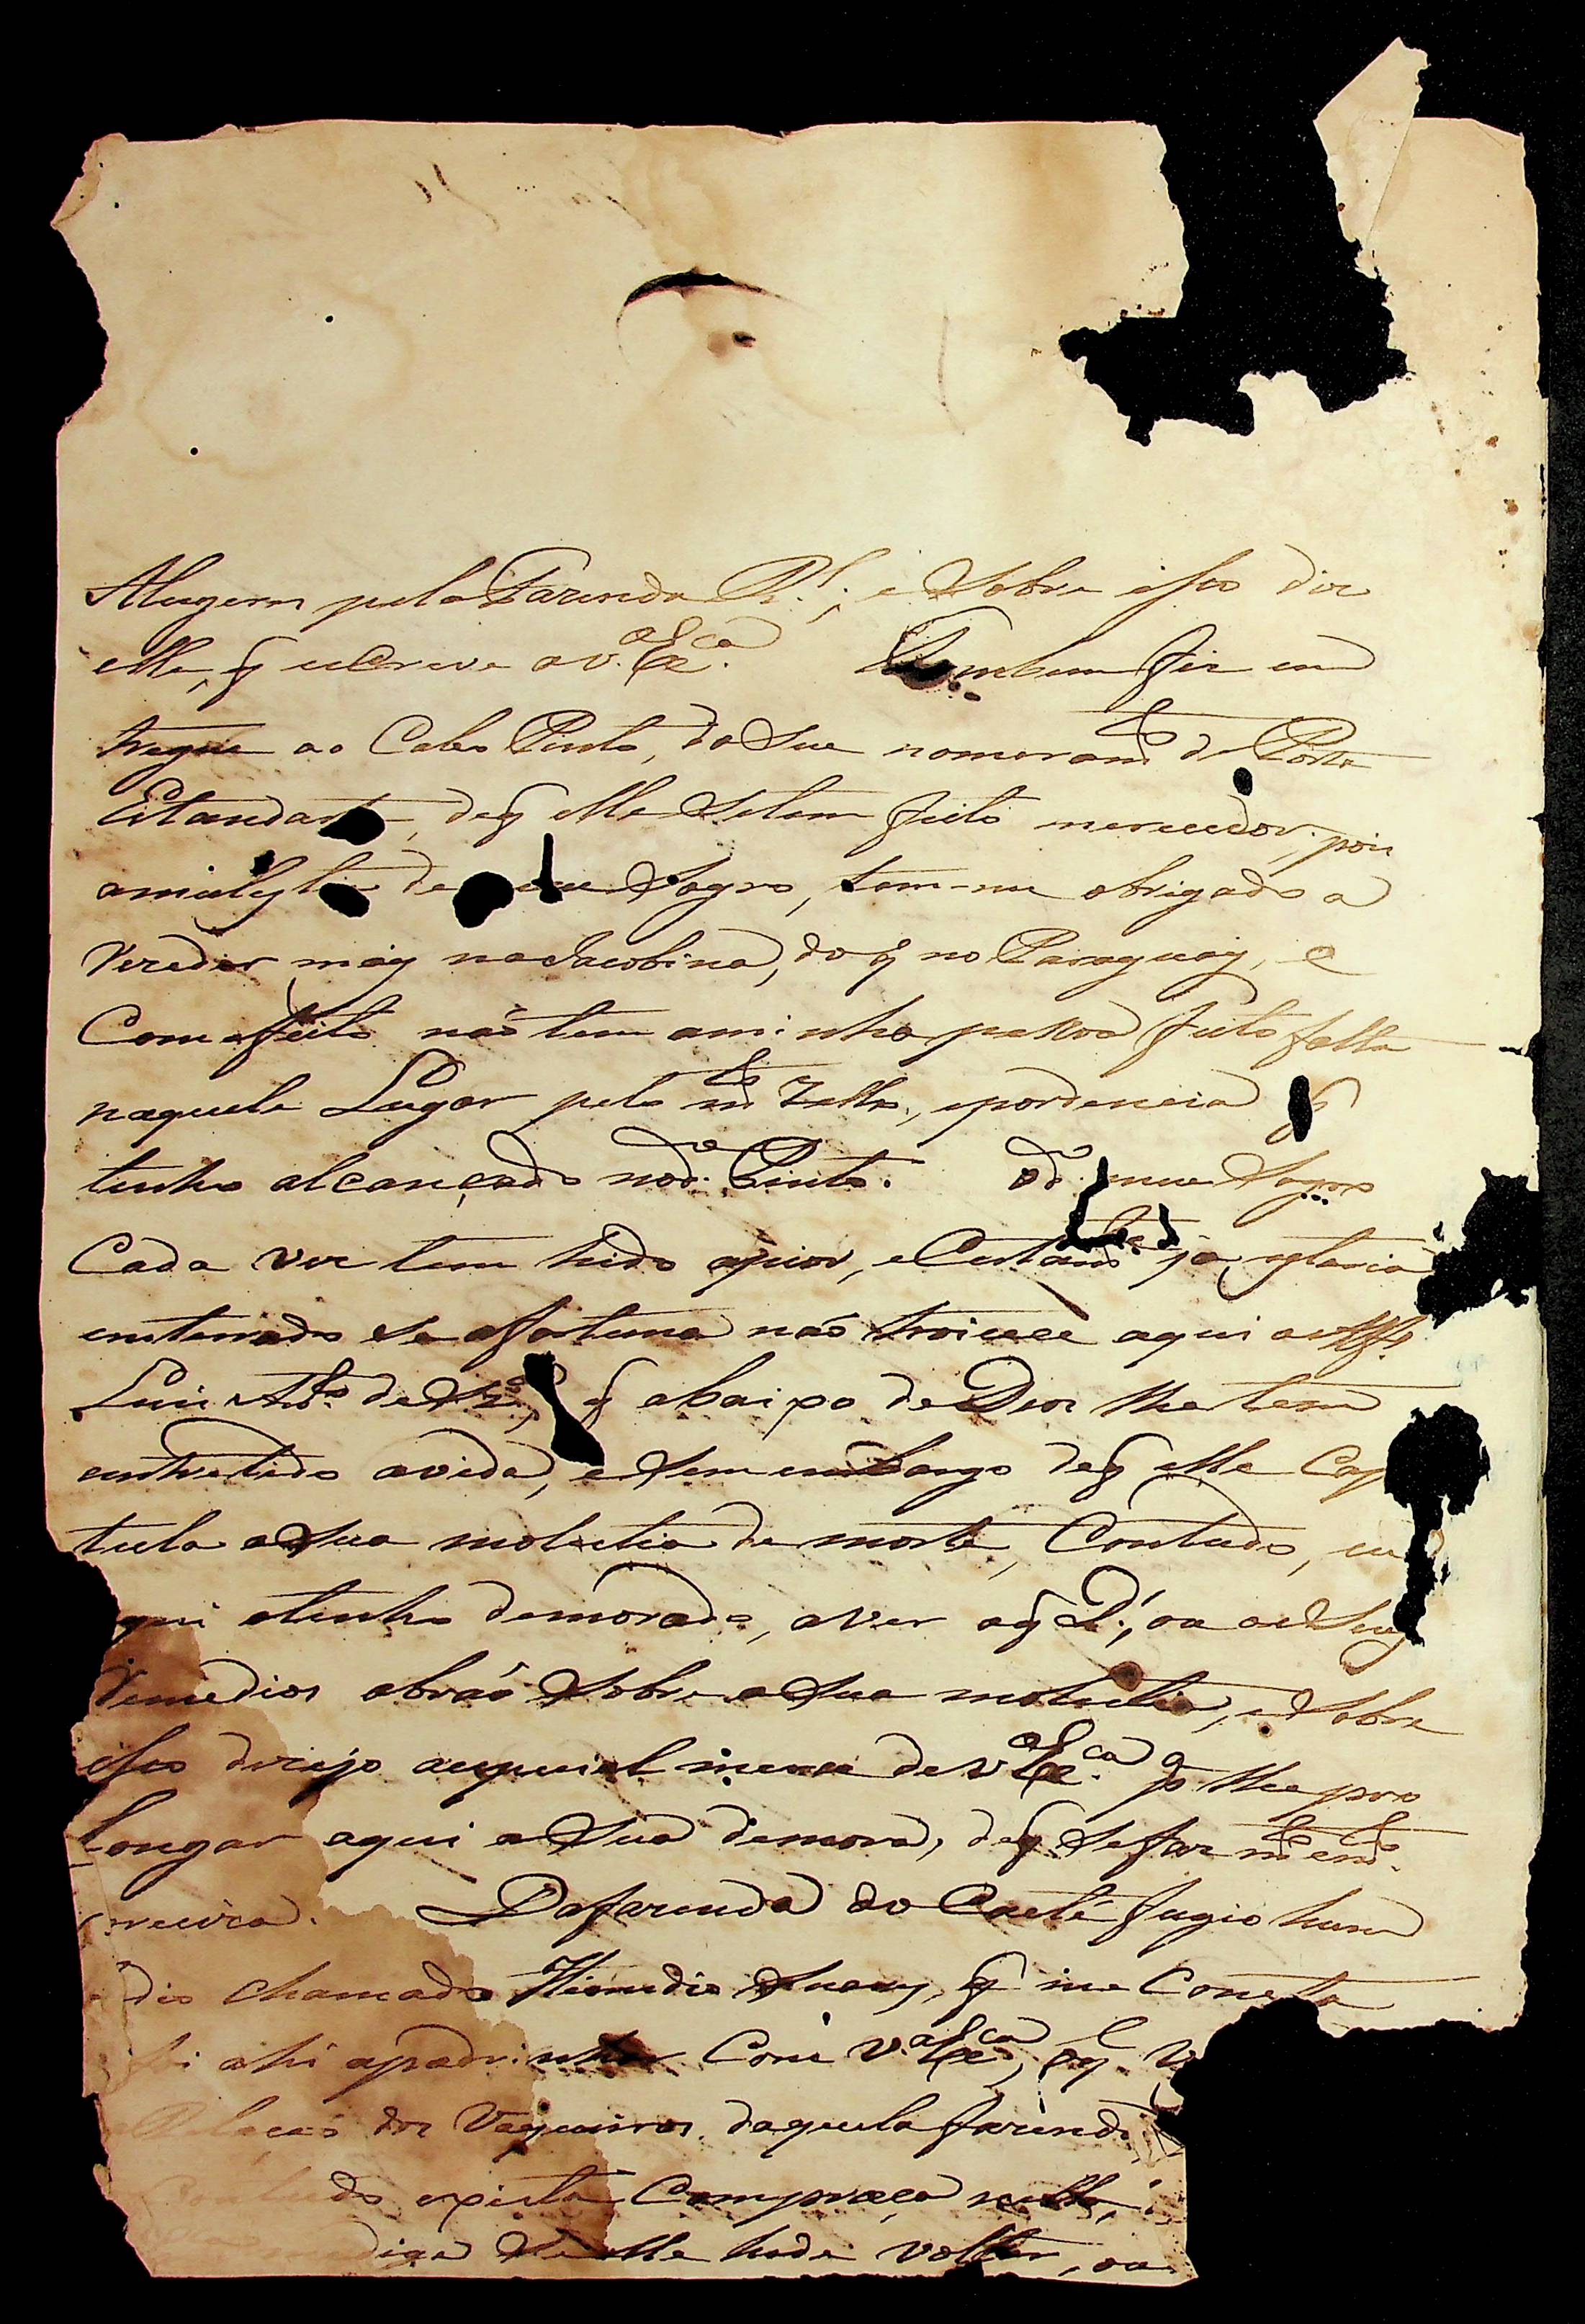 Alugem pela Fazenda R.l; e Sobre isso diz
elle, q escreve a v. Ex.ca Tambem fiz en
tregue ao Cabo Pinto, da Sua nomeram.to de Porta
Estandarte, deq elle Setem feito merecedor, pois
amolestia de meu Sogro, tem-me obrigado a
Rezedir mais na Jacobina, do q no Paraguay, e
Com efeito não tem aminha pessoa feito falta
naquele Lugar pelo m.to Zello, eprodencia q
tenho alcançado nod.o Pinto. Od.o meu Sogro
Cada vez tem hido apior, eCertam.te já estaria
enterrado se afortuna não troicece aqui o Alf.s
Luiz Ant.o de Sz.a, q abaixo de Deos lhe tem
entretido avida, eSem embargo deq elle Cap
tula aSua molestia de morte, Contudo, eu
qui otenho demorado, aver oq D.s, ou os Seus
Remedios obrão Sobre aSua molestia, eSobre
isso dirijo aespecial merce de V. Ex.ca p.a lhe pro
longar aqui a Sua demora, deq Sefaz m.to em.to
Dafazenda do Caeté fugio hum
dio chamado Remedio q me Consta
foi ahi apadrinhar Com V. Ex.ca, eq
dos Vaqueiros daquela fazenda
Contudo, expicta Compraça
diga Se elle hade voltar, ou